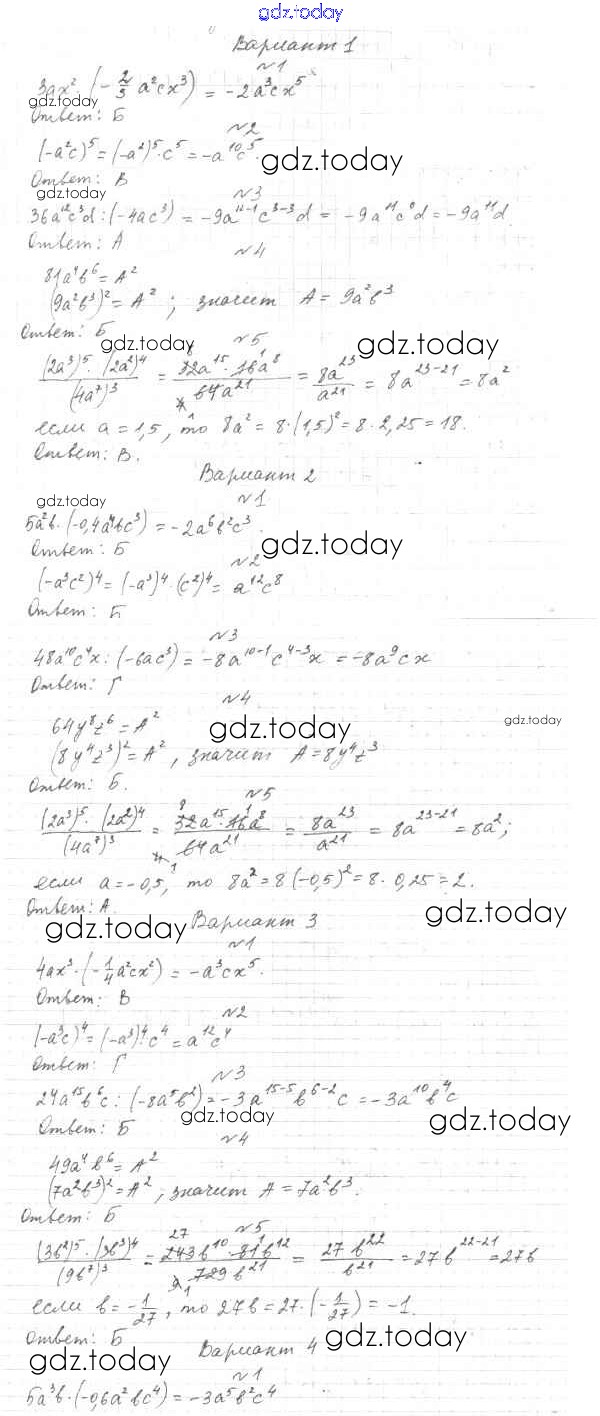 gdz.today
Вариант 1
№1
3ax² · (-2/3 a²cx³) = -2a³cx⁵
gdz.today
Ответ: Б
№2
(-a²c)⁵ = (-a²)⁵ · c⁵ = -a¹⁰c⁵.
gdz.today
Ответ: В
gdz.today
№3
36a¹²c³d : (-4ac³) = -9a¹²⁻¹c³⁻³d = -9a¹¹c⁰d = -9a¹¹d
Ответ: А
№4
81a⁴b⁶ = A²
(9a²b³)² = A² ; значит A = 9a²b³
Ответ: Б
gdz.today
gdz.today
№5
(2a³)⁵ · (2a²)⁴ / (4a⁷)³ = 32a¹⁵ · 16a⁸ / 64a²¹ = 8a²³ / a²¹ = 8a²³⁻²¹ = 8a²
если a = 1,5, то 8a² = 8 · (1,5)² = 8 · 2,25 = 18.
Ответ: В.
Вариант 2
gdz.today
№1
5a²b · (-0,4a⁴bc³) = -2a⁶b²c³.
gdz.today
Ответ: Б
№2
(-a³c²)⁴ = (-a³)⁴ · (c²)⁴ = a¹²c⁸
Ответ: Б
№3
48a¹⁰c⁴x : (-6ac³) = -8a¹⁰⁻¹c⁴⁻³x = -8a⁹cx
Ответ: Г
№4
64y⁸z⁶ = A²
gdz.today
gdz.today
(8y⁴z³)² = A², значит A = 8y⁴z³
Ответ: Б.
№5
(2a³)⁵ · (2a²)⁴ / (4a⁷)³ = 32a¹⁵ · 16a⁸ / 64a²¹ = 8a²³ / a²¹ = 8a²³⁻²¹ = 8a²;
если a = -0,5, то 8a² = 8(-0,5)² = 8 · 0,25 = 2.
Ответ: А.
gdz.today
gdz.today
Вариант 3
№1
4ax³ · (-1/4 a²cx²) = -a³cx⁵.
Ответ: В
№2
(-a³c)⁴ = (-a³)⁴ · c⁴ = a¹²c⁴
Ответ: Г
№3
24a¹⁵b⁶c : (-8a⁵b²) = -3a¹⁵⁻⁵b⁶⁻²c = -3a¹⁰b⁴c
gdz.today
gdz.today
Ответ: Б
№4
49a⁴b⁶ = A²
(7a²b³)² = A² ; значит A = 7a²b³.
Ответ: Б
№5
(3b²)⁵ · (3b³)⁴ / (9b⁷)³ = 243b¹⁰ · 81b¹² / 729b²¹ = 27b²² / b²¹ = 27b²²⁻²¹ = 27b
если b = -1/27, то 27b = 27 · (-1/27) = -1.
Ответ: Б
gdz.today
Вариант 4
gdz.today
№1
5a³b · (-0,6a²bc⁴) = -3a⁵b²c⁴